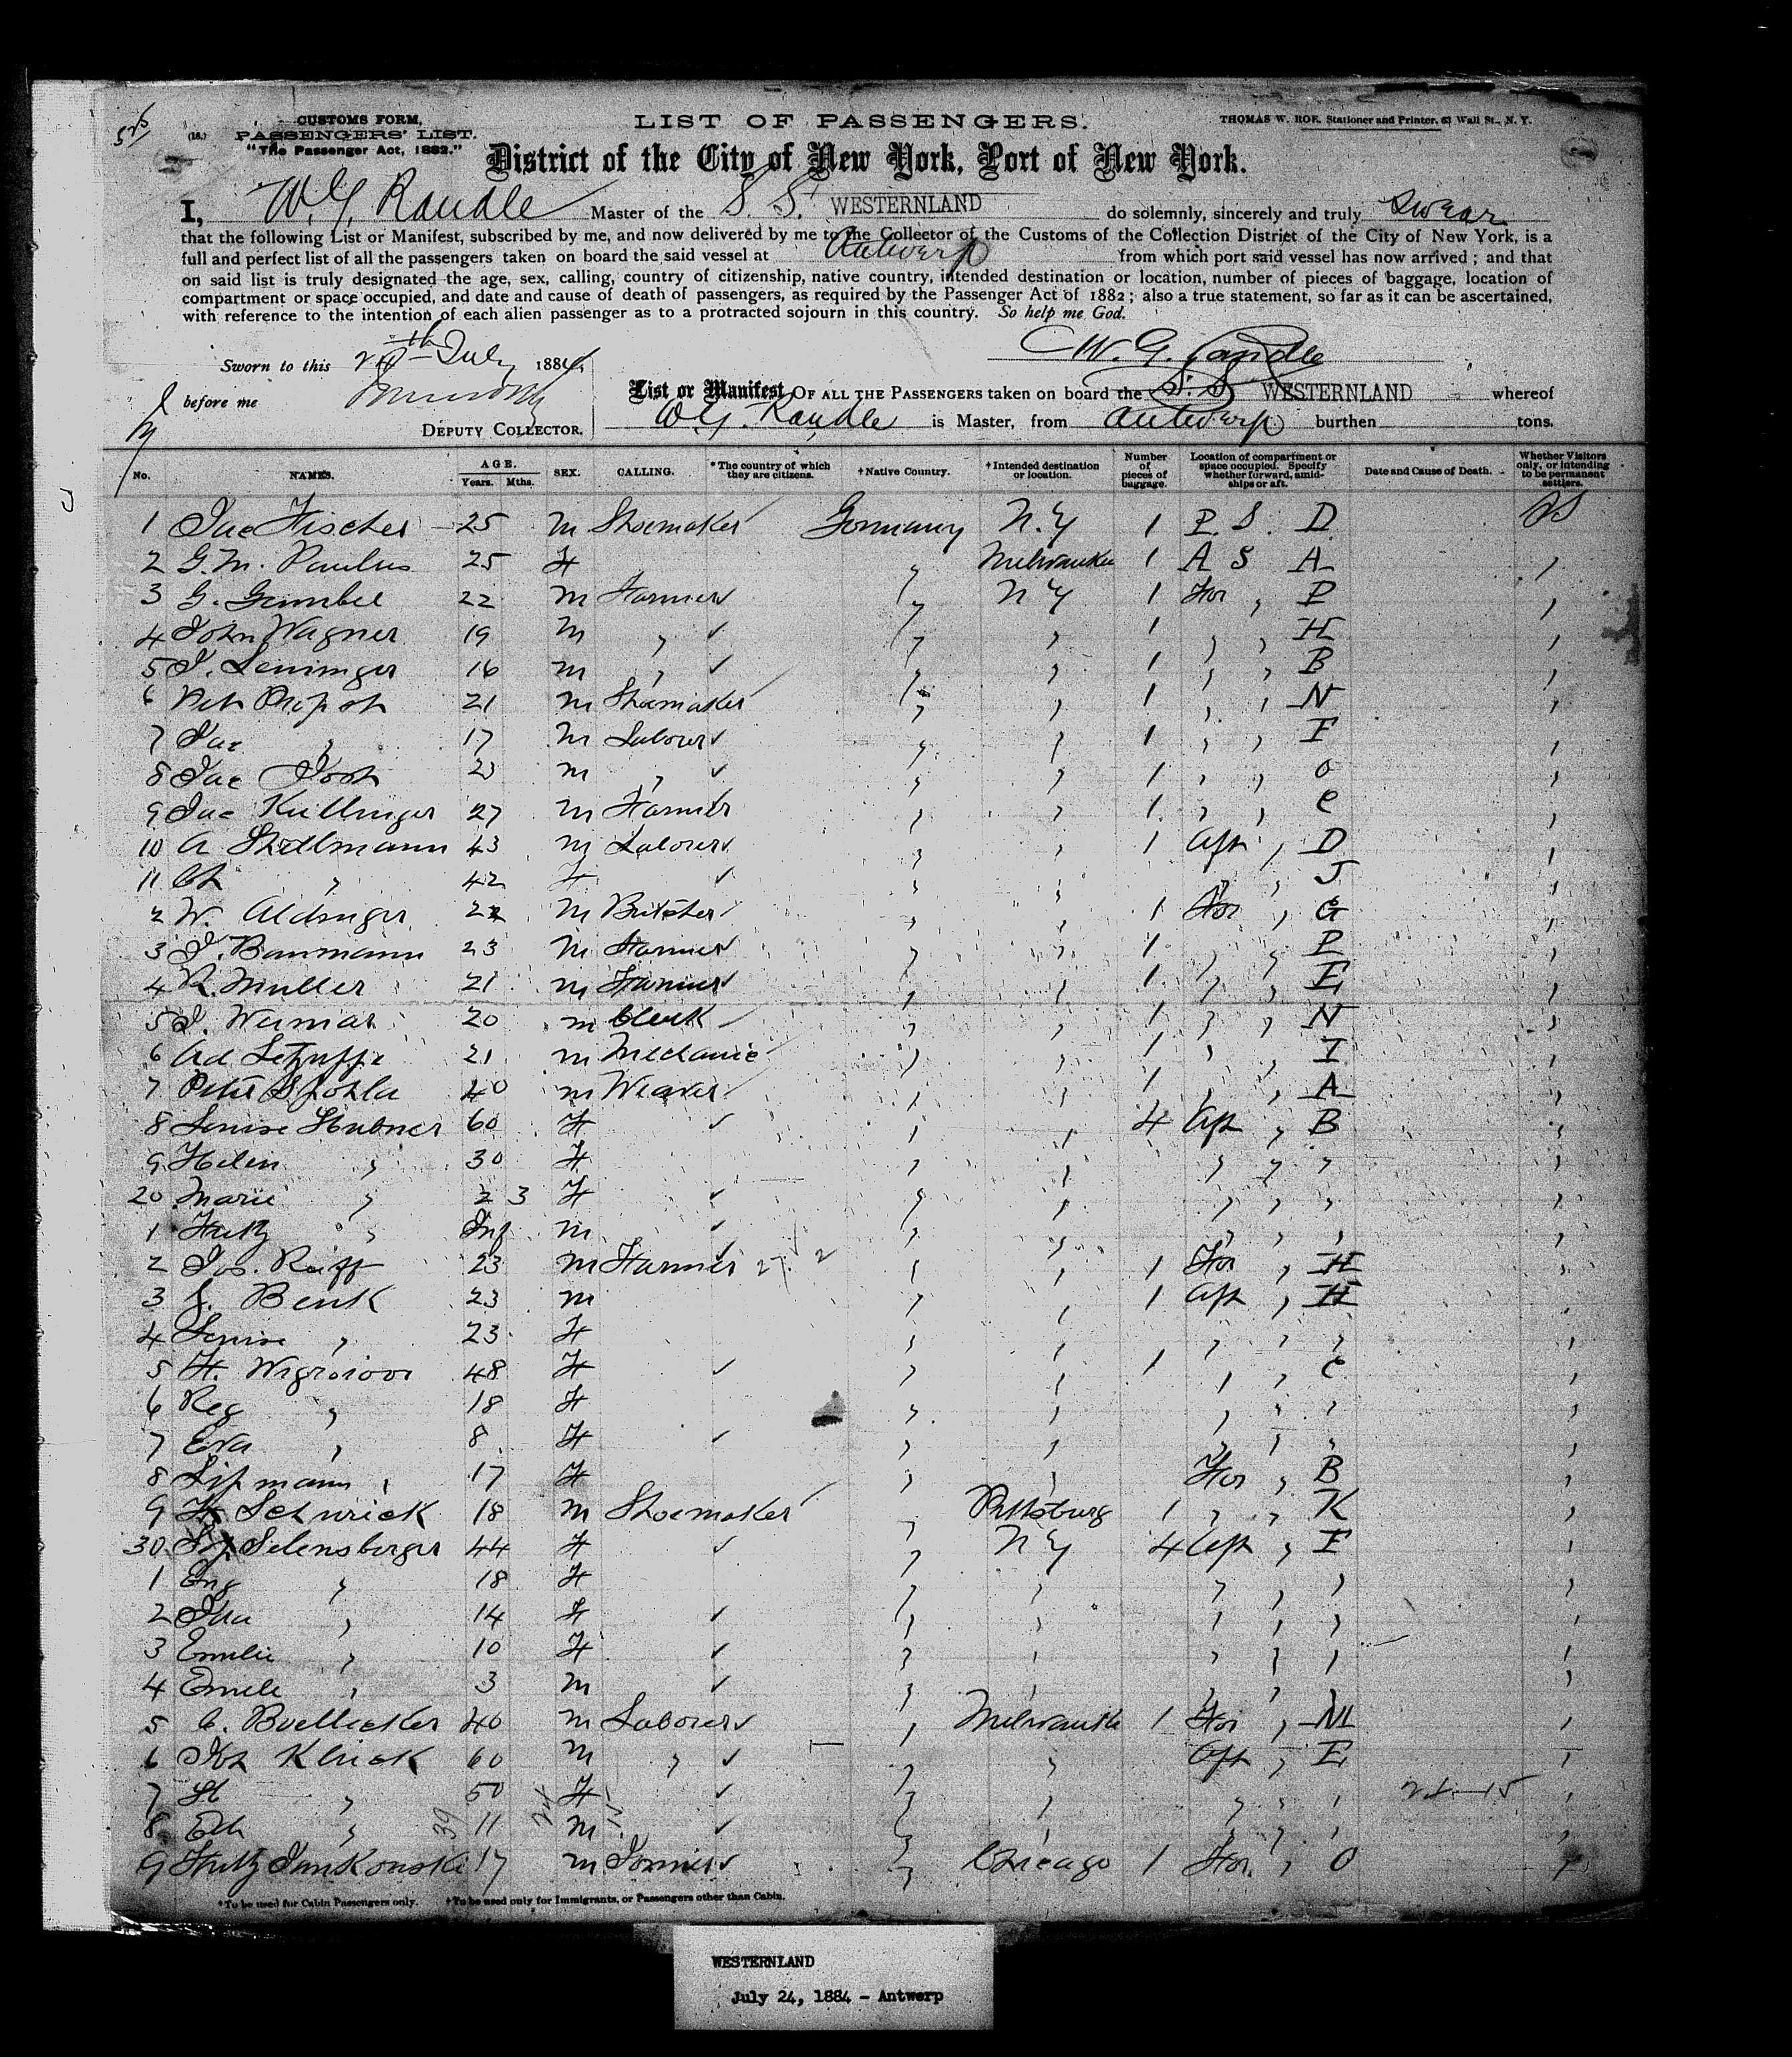 CUSTOMS FORM,
(18.) PASSENGERS' LIST.
"The Passenger Act, 1882."
LIST OF PASSENGERS.
THOMAS W. ROE, Stationer and Printer, 63 Wall St., N. Y.
District of the City of New York, Port of New York.
I, W. G. Randle Master of the S. S. WESTERNLAND do solemnly, sincerely and truly swear
that the following List or Manifest, subscribed by me, and now delivered by me to the Collector of the Customs of the Collection District of the City of New York, is a
full and perfect list of all the passengers taken on board the said vessel at Antwerp from which port said vessel has now arrived; and that
on said list is truly designated the age, sex, calling, country of citizenship, native country, intended destination or location, number of pieces of baggage, location of
compartment or space occupied, and date and cause of death of passengers, as required by the Passenger Act of 1882; also a true statement, so far as it can be ascertained,
with reference to the intention of each alien passenger as to a protracted sojourn in this country. So help me God.
W. G. Randle
Sworn to this July 1884
before me
DEPUTY COLLECTOR.
List or Manifest OF ALL THE PASSENGERS taken on board the S. S. WESTERNLAND whereof
W. G. Randle is Master, from Antwerp burthen tons.
No. NAMES. AGE. Years. Mths. SEX. CALLING. *The country of which they are citizens. †Native Country. †Intended destination or location. Number of pieces of baggage. Location of compartment or space occupied. Specify whether forward, amidships or aft. Date and Cause of Death. Whether Visitors only, or intending to be permanent settlers.
1 Jac Fischer 25 M Shoemaker Germany N.Y 1 P. S. D
2 G. M. Paulus 25 F " Milwaukee 1 A S A "
3 G. Gumbel 22 M Farmer " N Y 1 For " P "
4 John Wagner 19 M " " " 1 " " H "
5 J. Leininger 16 M " " " 1 " " B "
6 21 M Shoemaker " " 1 " " N "
7 Jac " 17 M Laborer " " 1 " " F "
8 Jac 23 M " " " 1 " " O "
9 Jac Kullinger 27 M Farmer " " 1 " " C "
10 A 43 M Laborer " " 1 Aft " D "
11 Ch " 42 F " " " " J "
2 W. Aldinger 22 M Butcher " " 1 For " G "
3 J. Baumann 23 M Farmer " " 1 " " P "
4 R. Muller 21 M Farmer " " 1 " " E "
5 J. Weimar 20 M Clerk " " 1 " " N "
6 Ad 21 M Mechanic " " 1 " " I "
7 Peter 40 M Weaver " " 1 " " A "
8 Louise Hubner 60 F " " 4 Aft " B "
9 Helen " 30 F " " " " " "
20 Marie " 2 3 F " " " " " "
1 Fritz " Inf M " " " " " "
2 Jos. Reiff 23 M Farmer " " 1 For " H "
3 J. Benk 23 M " " 1 Aft " H "
4 Louise " 23 F " " " " " "
5 48 F " " 1 " " C "
6 Reg " 18 F " " " " " "
7 Eva " 8 F " " " " " "
8 Lipmann " 17 F " " For " B "
9 Schwick 18 M Shoemaker " Pittsburg 1 " " K "
30 Selensberger 44 F " N Y 4 Aft " F "
1 Eug " 18 F " " " " " "
2 Ida " 14 F " " " " " "
3 Emilie " 10 F " " " " " "
4 Emile " 3 M " " " " " "
5 C. Boellicker 40 M Laborer " Milwaukee 1 For " M "
6 Klick 60 M " " " Aft " E "
7 " 50 F " " " " " "
8 " 11 M " " " " " "
9 Fritz 17 M " Chicago 1 For " O "
*To be used for Cabin Passengers only. †To be used only for Immigrants, or Passengers other than Cabin.
WESTERNLAND
July 24, 1884 - Antwerp